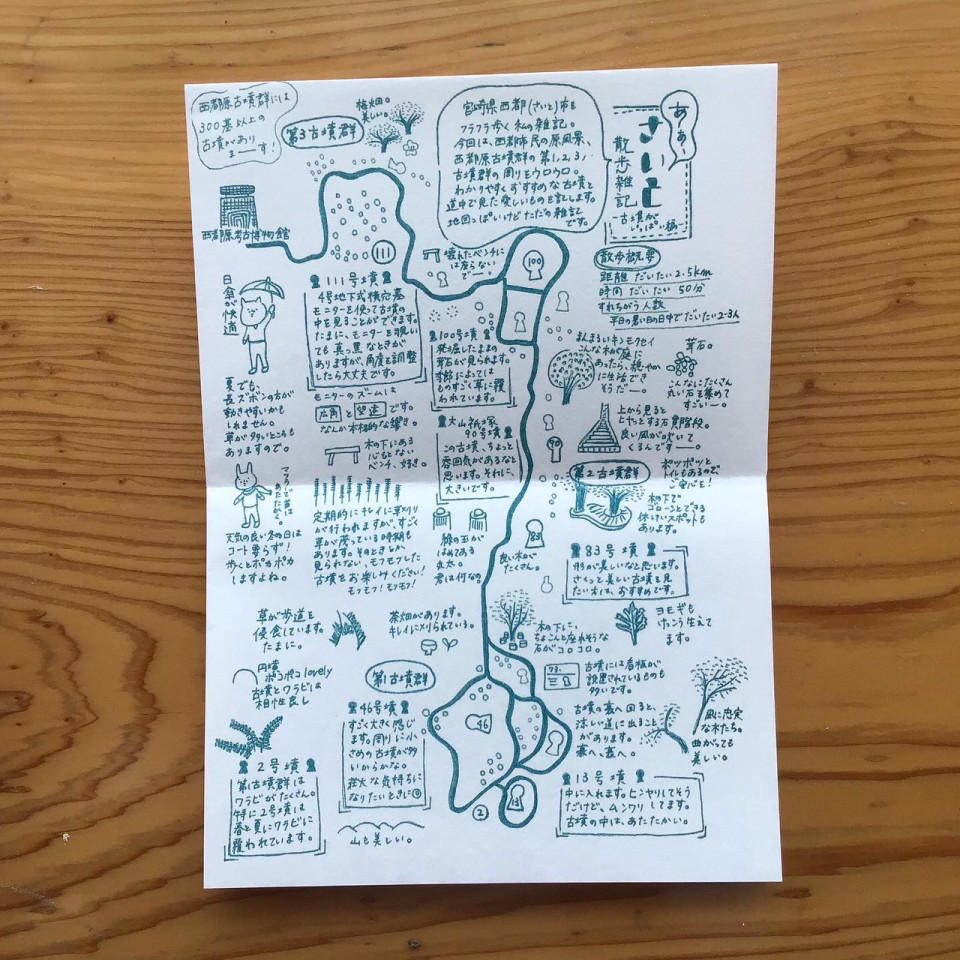 あぁ、
さいと
散歩雑記
〜古墳が
いっぱい編〜
宮崎県西都(さいと)市を
フラフラ歩く私の雑記。
今回は、西都市民の原風景、
西都原古墳群の第1,2,3,
古墳群の周りをウロウロ。
わかりやすくおすすめな古墳と
道中で見た愛しいものを記します。
地図っぽいけどただの雑記
です。
散歩概要
距離 だいたい2.5km
時間 だいたい 50分
すれちがう人数
平日の暑い日の日中でだいたい2-3人
西都原古墳群には
300基以上の
古墳がありまーす!
第3古墳群
梅畑。
美しい。
西都原考古博物館
111
100
壊れたベンチに
は座らない
でー!
日傘が快適
夏でも、
長ズボンの方が
動きやすいかも
しれません。
草が多いところも
ありますので。
111号墳
4号地下式横穴墓
モニターを使って古墳の
中を見ることができます。
たまに、モニターを覗い
ても真っ黒なときが
ありますが、角度を調整
したら大丈夫です。
モニターのズームは
広角と望遠です。
なんか本格的な響き。
木の下にある
心もとない
ベンチ、好き。
100号墳
発掘したままの
葺石が見られます。
季節によっては
ものすごく草に覆
われています。
大山祇塚
90号墳
この古墳、ちょっと
雰囲気があるなと
思います。それに、
大きいです。
まんまるいキンモクセイ
こんな木が庭に
あったら、穏やか
に生活でき
そうだー。
葺石。
こんなにたくさん
丸い石を集めて
すごいー。
上から見ると
ヒヤッとする石貫階段。
良い風が吹いて
くるんですー。
90
第2古墳群
ポツポツと
トイレもあるので
ご安心を!
木の下で
ゴローンとできる
休けいスポットも
あります。
マフラーで首は
あたたかく。
天気の良い冬の日は
コート要らず!
歩くとポカポカ
しますよね。
定期的にキレイに草刈り
が行われますが、すごく
草が茂っている時期も
あります。そのときしか
見られない、モフモフした
古墳をお楽しみください!
モフっ!モフっ!
緑の玉が
はめてある
丸太。
君は何な?
83
良い木が
たくさん。
83号墳
形が美しいなと思います。
さくっと美しい古墳を見
たい方は、おすすめです。
草が歩道を
侵食しています。
たまに。
茶畑があります。
キレイに刈られている。
木の下に、
ちょこんと座れそうな
石がコロコロ。
ヨモギも
けっこう生えて
ます。
円墳
ポコポコlovely
古墳とワラビは
相性良し
第1古墳群
73.
古墳には看板が
設置されているものも
多いです。
古墳の裏へ回ると、
涼しい道に出ること
があります。
裏へ、裏へ。
風に忠実
な木たち。
曲がっても
美しい。
46号墳
すごく大きく感じ
ます。周りに小
さめの古墳が多
いからかな。
壮大な気持ちに
なりたいときに
46
2号墳
第1古墳群は
ワラビがたくさん。
特に2号墳は
春と夏にワラビに
覆われています。
山も美しい。
2
13
13号墳
中に入れます。ヒンヤリしてそう
だけど、ムンワリしてます。
古墳の中は、あたたかい。